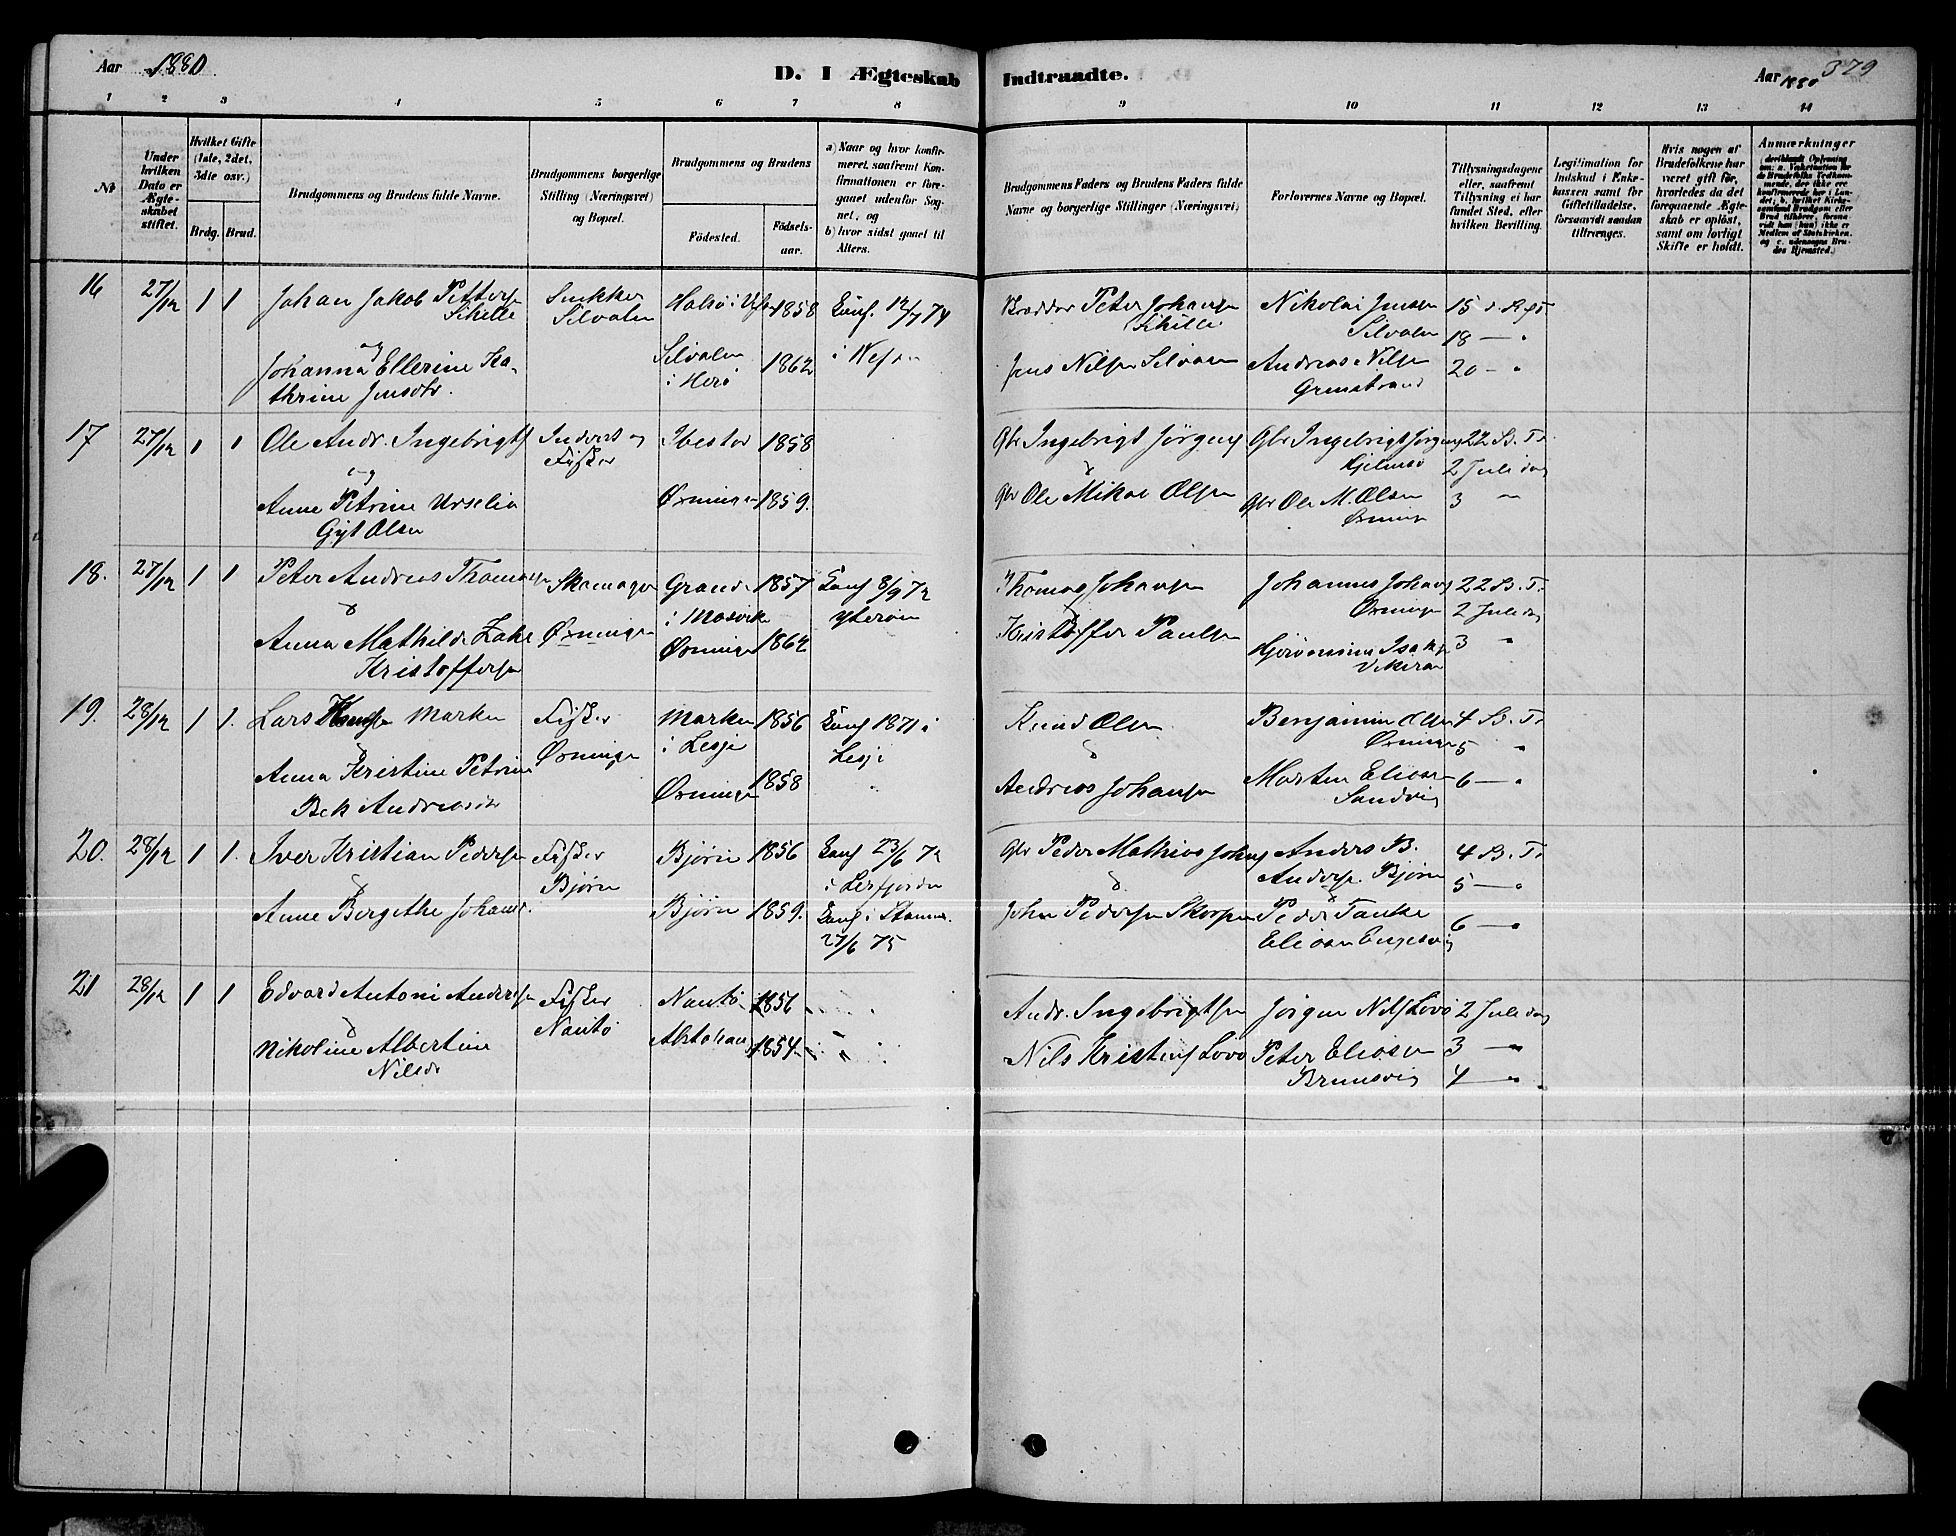 Aar 1880.
D. I Ægteskab Indtraadte.
Aar 1880 379
1 2 3 4 5 6 7 8 9 10 11 12 13 14
Nr.
Under hvilken Dato er Ægteskabet stiftet.
Hvilket Gifte (1ste, 2det, 3die osv.)
Brdg. Brud.
Brudgommens og Brudens fulde Navne.
Brudgommens borgerlige Stilling (Næringsvei) og Bopæl.
Brudgommens og Brudens
Fødested. Fødselsaar.
a) Naar og hvor konfirmeret, saafremt Konfirmationen er foregaaet udenfor Sognet, og
b) hvor sidst gaaet til Alters.
Brudgommens Faders og Brudens Faders fulde Navne og borgerlige Stillinger (Næringsvei)
Forlovernes Navne og Bopæl.
Tillysningsdagene eller, saafremt Tillysning ei har fundet Sted, efter hvilken Bevilling.
Legitimation for Indskud i Enkekassen samt for Giftetilladelse, forsaavidt saadan tiltrænges.
Hvis nogen af Brudefolkene har været gift før, hvorledes da det foregaaende Ægteskab er opløst, samt om lovligt Skifte er holdt.
Anmærkninger
16 27/12 1 1 Johan Jakob Petters. 1858 Konf. 14/7 74 Peter Johansen Nikolai Jensen 15 S. Aft
Silvalen Silvalen 18 — "
og Silvalen 1862 i Vefsn Jens Nilsen Silvalen Andreas Nilsen 20 — "
Johanna Ellerine Kathrine Jensdtr. i Herø Grenstrand
17 27/12 1 1 Ole Andr. Ingebrigts. Indvort og Ibestad 1858 Gbr Ingebrigt Jørgens. Gbr Ingebrigt Jørgens. 22 S. Tr.
og Fisker 2 Juledag
Anne Petrine Urselia Ørningen 1859. Gbr Ole Mikal Olsen Gbr Ole M. Olsen 3 "
Gyt Olsen Ørningen
18. 27/12 1 1 Peter Andreas Thomasen Skomager Grande 1857 Konf 8/9 72 Thomas Johansen Johannes Johans. 22 S. Tr.
& i Mosvik Ytterøen Ørningen 2 Juledag
Anna Mathilde Zahl Ørningen Ørningen 1862 Kristoffer Paulsen 3 "
Kristoffersen
19. 28/12 1 1. Lars Marken Fisker Marken 1856 Konf 1871 i Knud Olsen Benjamin Olsen 4 S. Tr
& Ørningen i Lesje Lesje & Ørningen 5 "
Anna Kristine Petrine Ørningen 1858 " Andreas Johansen Morten Eliasen 6 — "
Bek Andreasdtr Sandvig
20. 28/12 1 1. Iver Kristian Pedersen Fisker Bjørn 1856 Konf 23/6 72 Gbr Peder Mathias Johns. Anders B. 4 S. Tr
& Bjørn i Leirfjorden & Anders. Bjørn 5 — "
Anne Bergethe Johans. Bjørn 1859. Konf i Stamnes John Pedersen Skorpen Peder Tanke 6 — "
27/6 75 Eliasen Engesvig
21 28/12 1 1 Edvard Antoni Andersen Fisker Nautø 1856 Andr. Ingebrigtsen Jørgen Nils. Lovo 2 Juledag
& Nautø
Nikoline Albertine 1854 " Nils Kristens. Lovo Peter Eliasen 3 — "
Nilsdr Brunsvig 4 — "